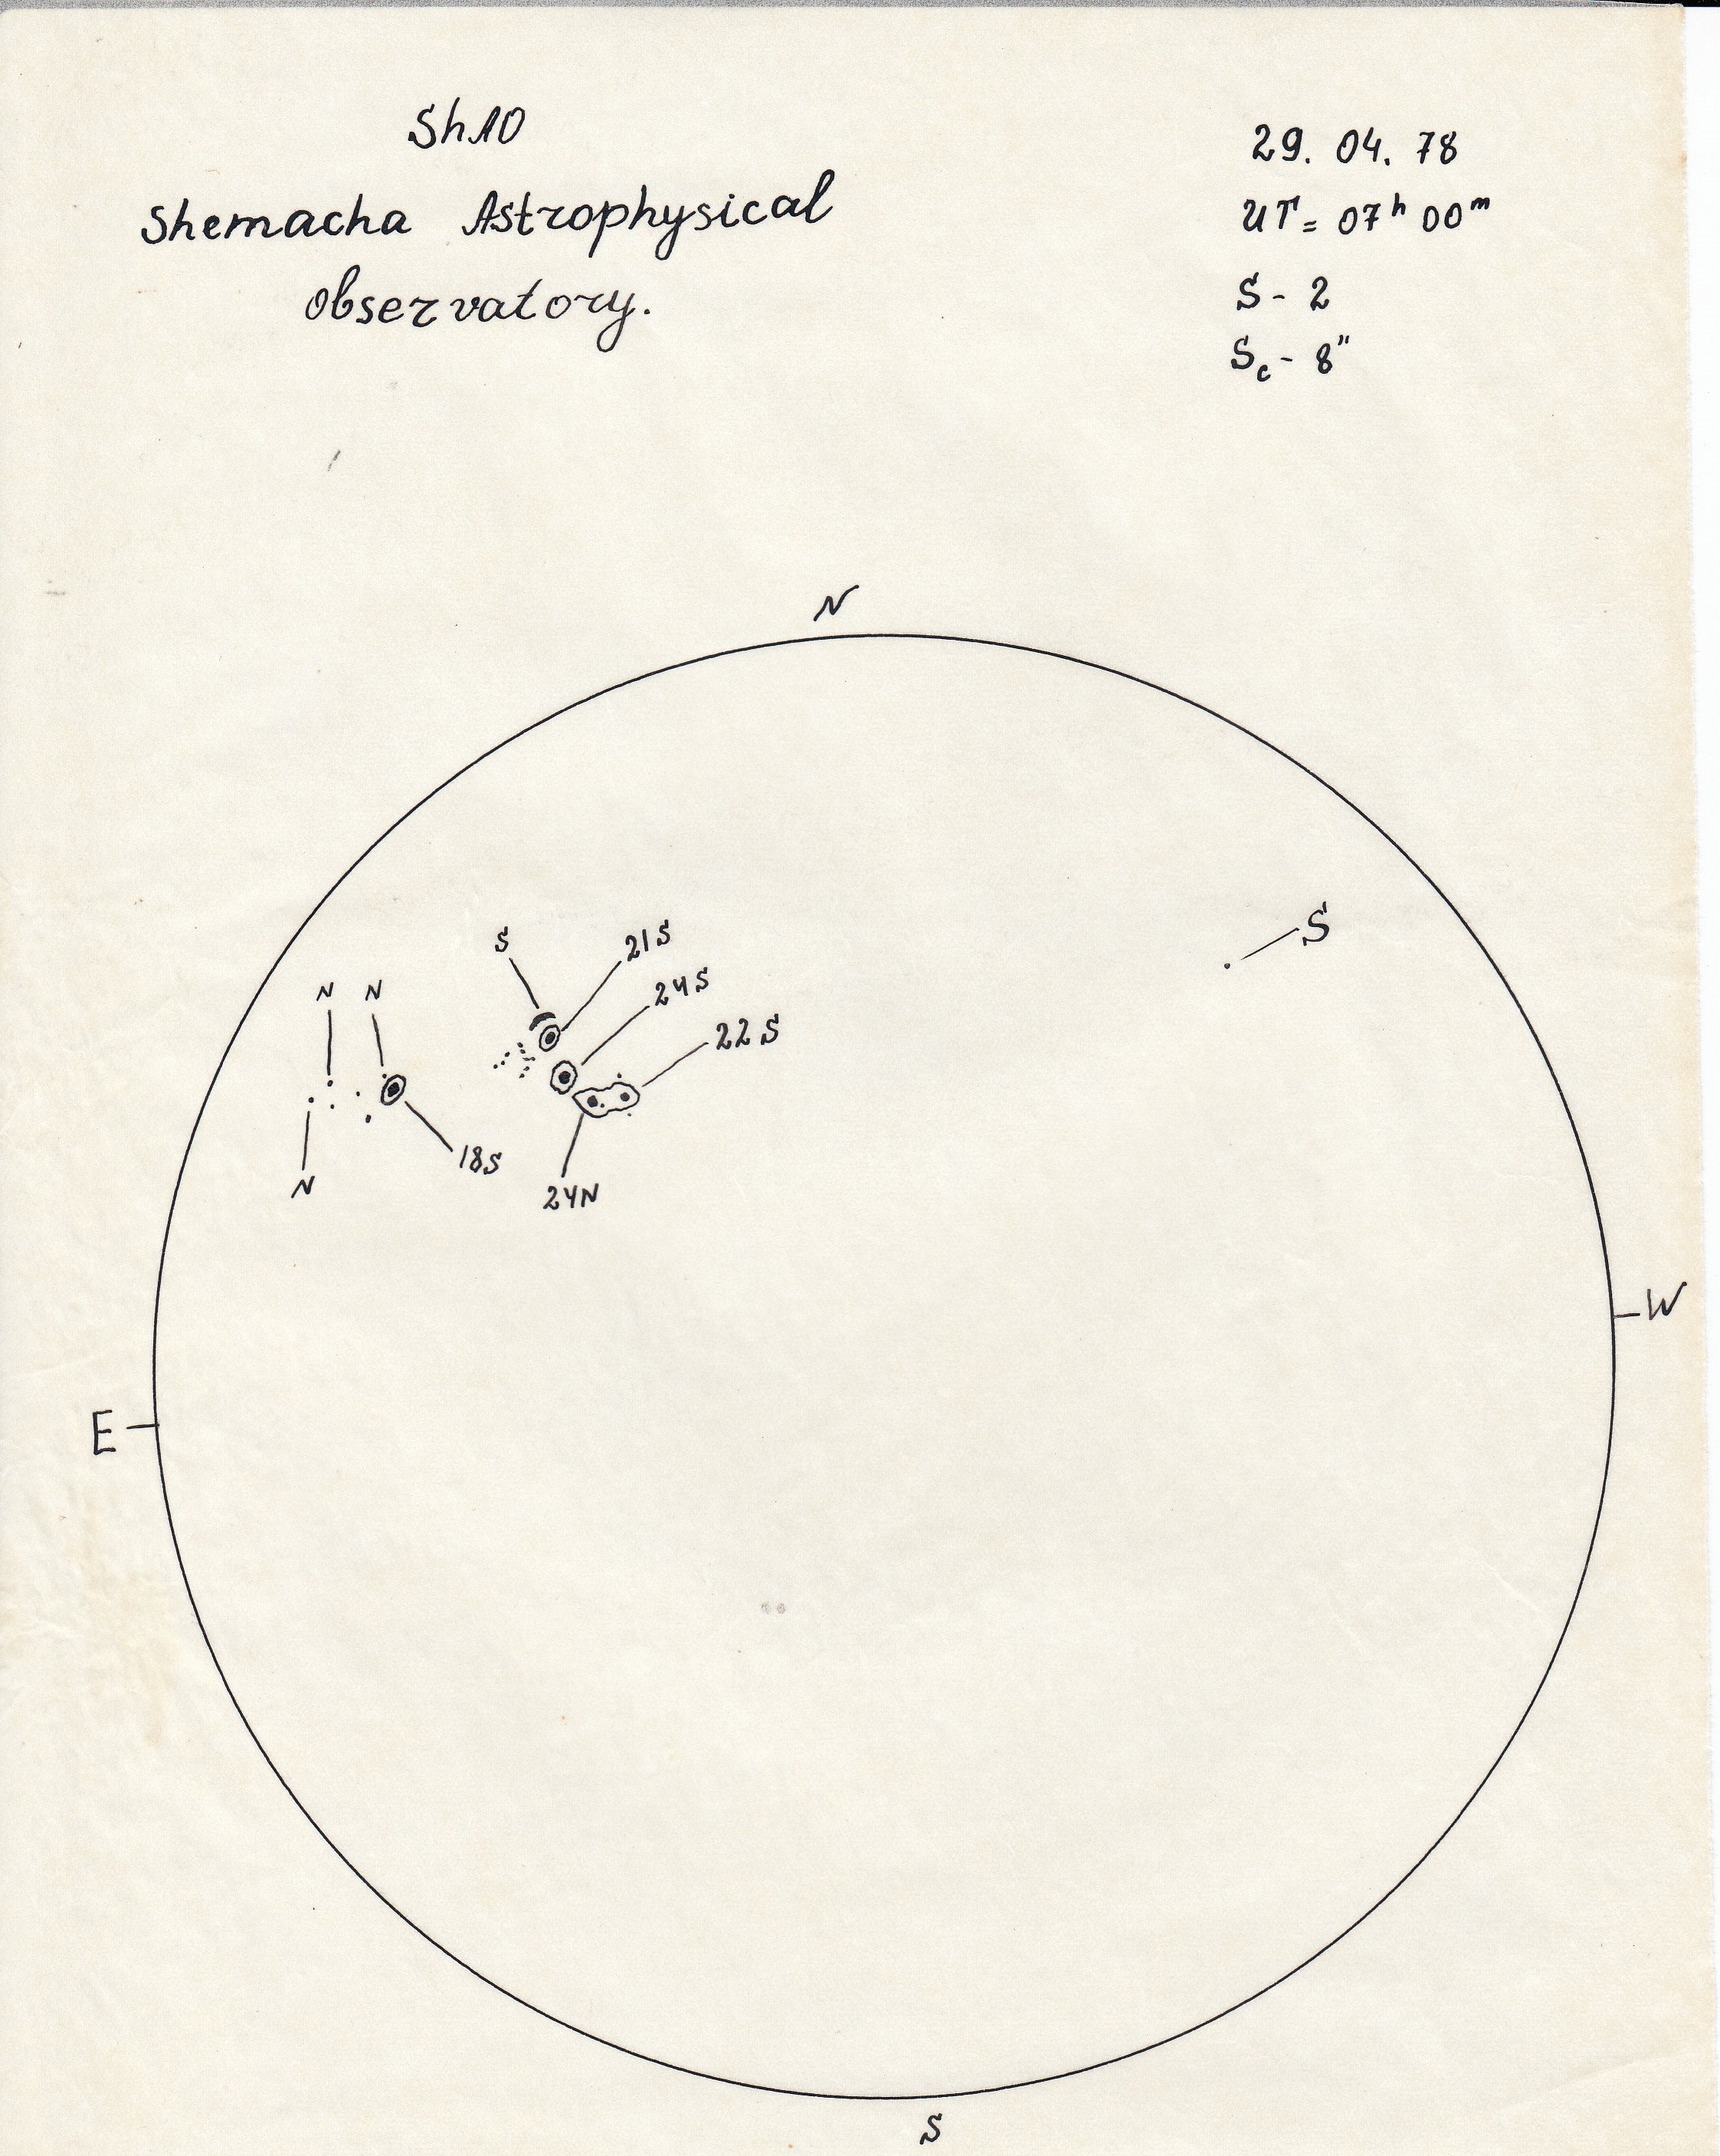 Sh10
Shemacha Astrophysical
Observatory.
29. 04. 78
UT= 07ʰ 00ᵐ
S - 2
Sc - 8"
N
S
S
21S
24S
N N
22S
18S
N
24N
W
E
S